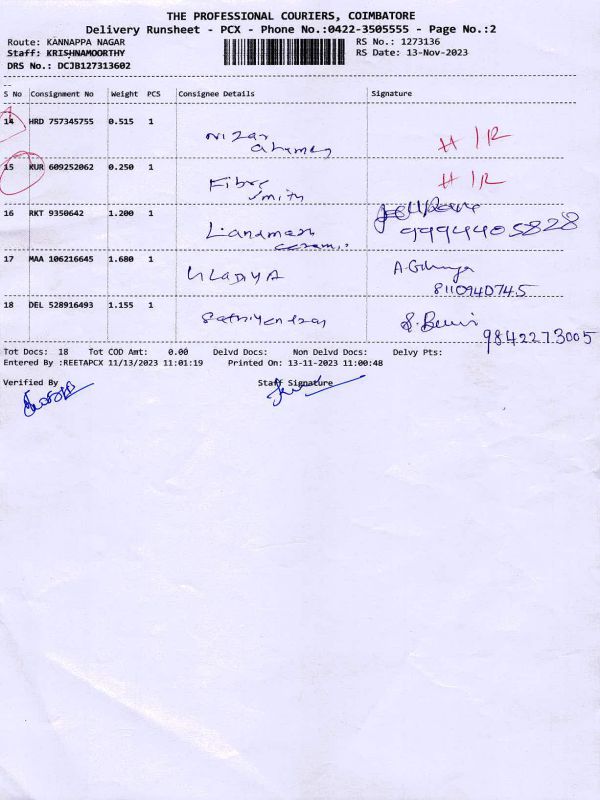 THE PROFESSIONAL COURIERS, COIMBATORE
Delivery Runsheet - PCX - Phone No.:0422-3505555 - Page No.:2
Route: KANNAPPA NAGAR RS No.: 1273136
Staff: KRISHNAMOORTHY RS Date: 13-Nov-2023
DRS No.: DCJB127313602
S No Consignment No Weight PCS Consignee Details Signature
14 HRD 757345755 0.515 1 Nizar
15 KUR 609252062 0.250 1 Fibre
Smith
16 RKT 9350642 1.200 1 Landmark
9994405828
17 MAA 106216645 1.680 1
8110940745
18 DEL 528916493 1.155 1
9842273005
Tot Docs: 18 Tot COD Amt: 0.00 Delvd Docs: Non Delvd Docs: Delvy Pts:
Entered By :REETAPCX 11/13/2023 11:01:19 Printed On: 13-11-2023 11:00:48
Verified By Staff Signature